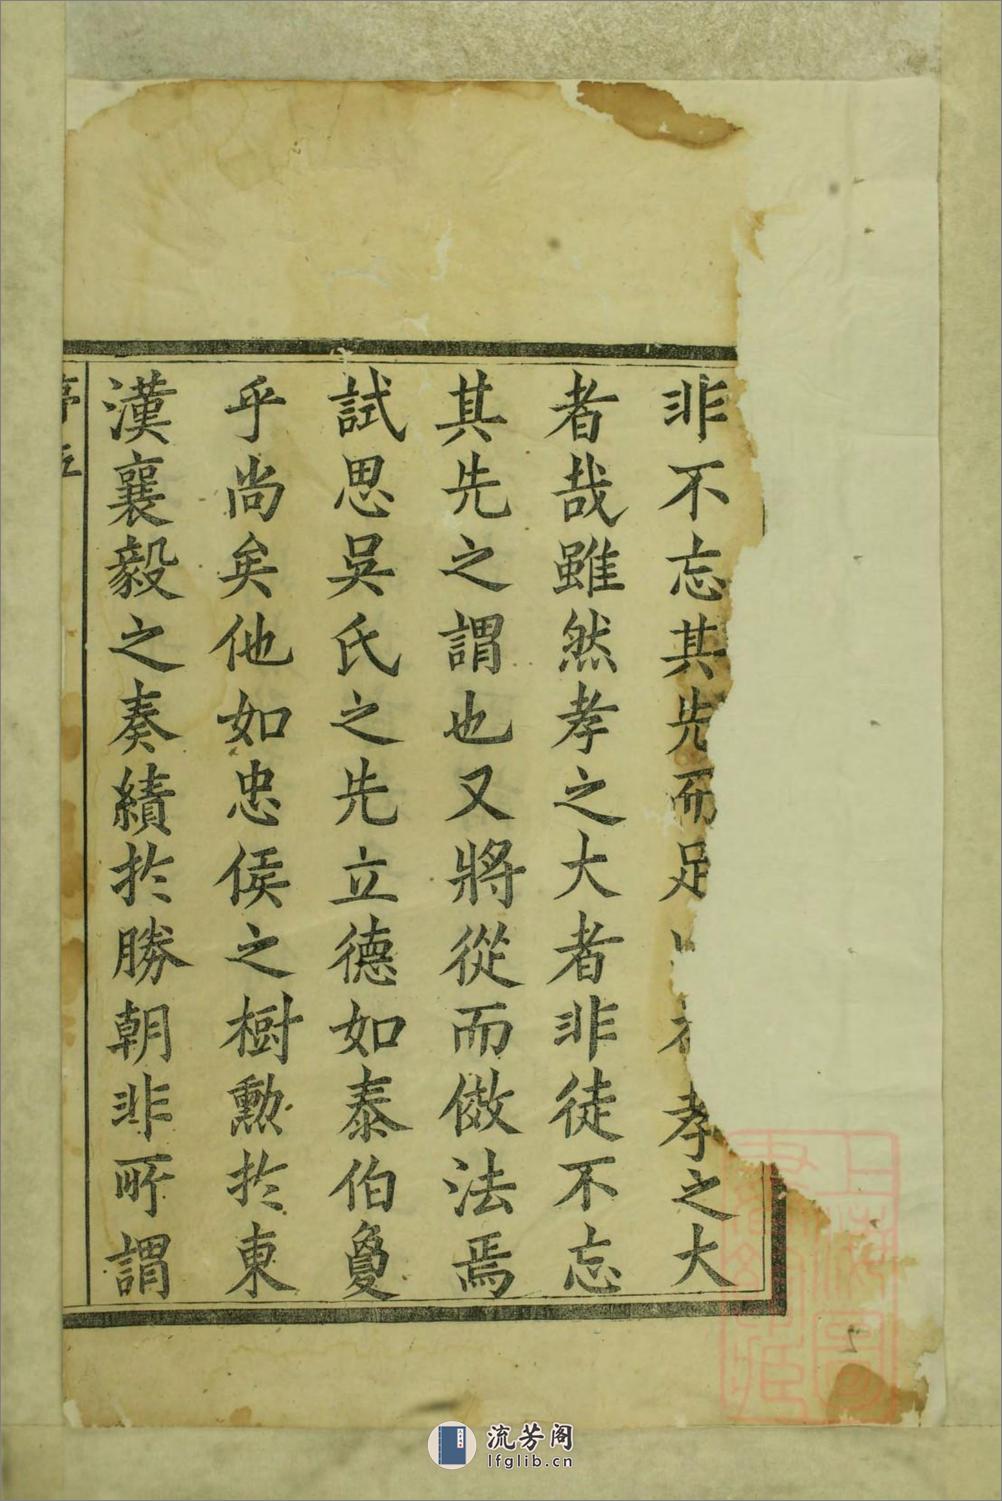 非不忘其先而足以 孝之大
者哉雖然孝之大者非徒不忘
其先之謂也又將從而倣法焉
試思吳氏之先立德如泰伯夐
乎尚矣他如忠侯之樹勲於東
漢襄毅之奏績於勝朝非所謂
序五
上海圖書館藏
流芳阁
lfglib.cn